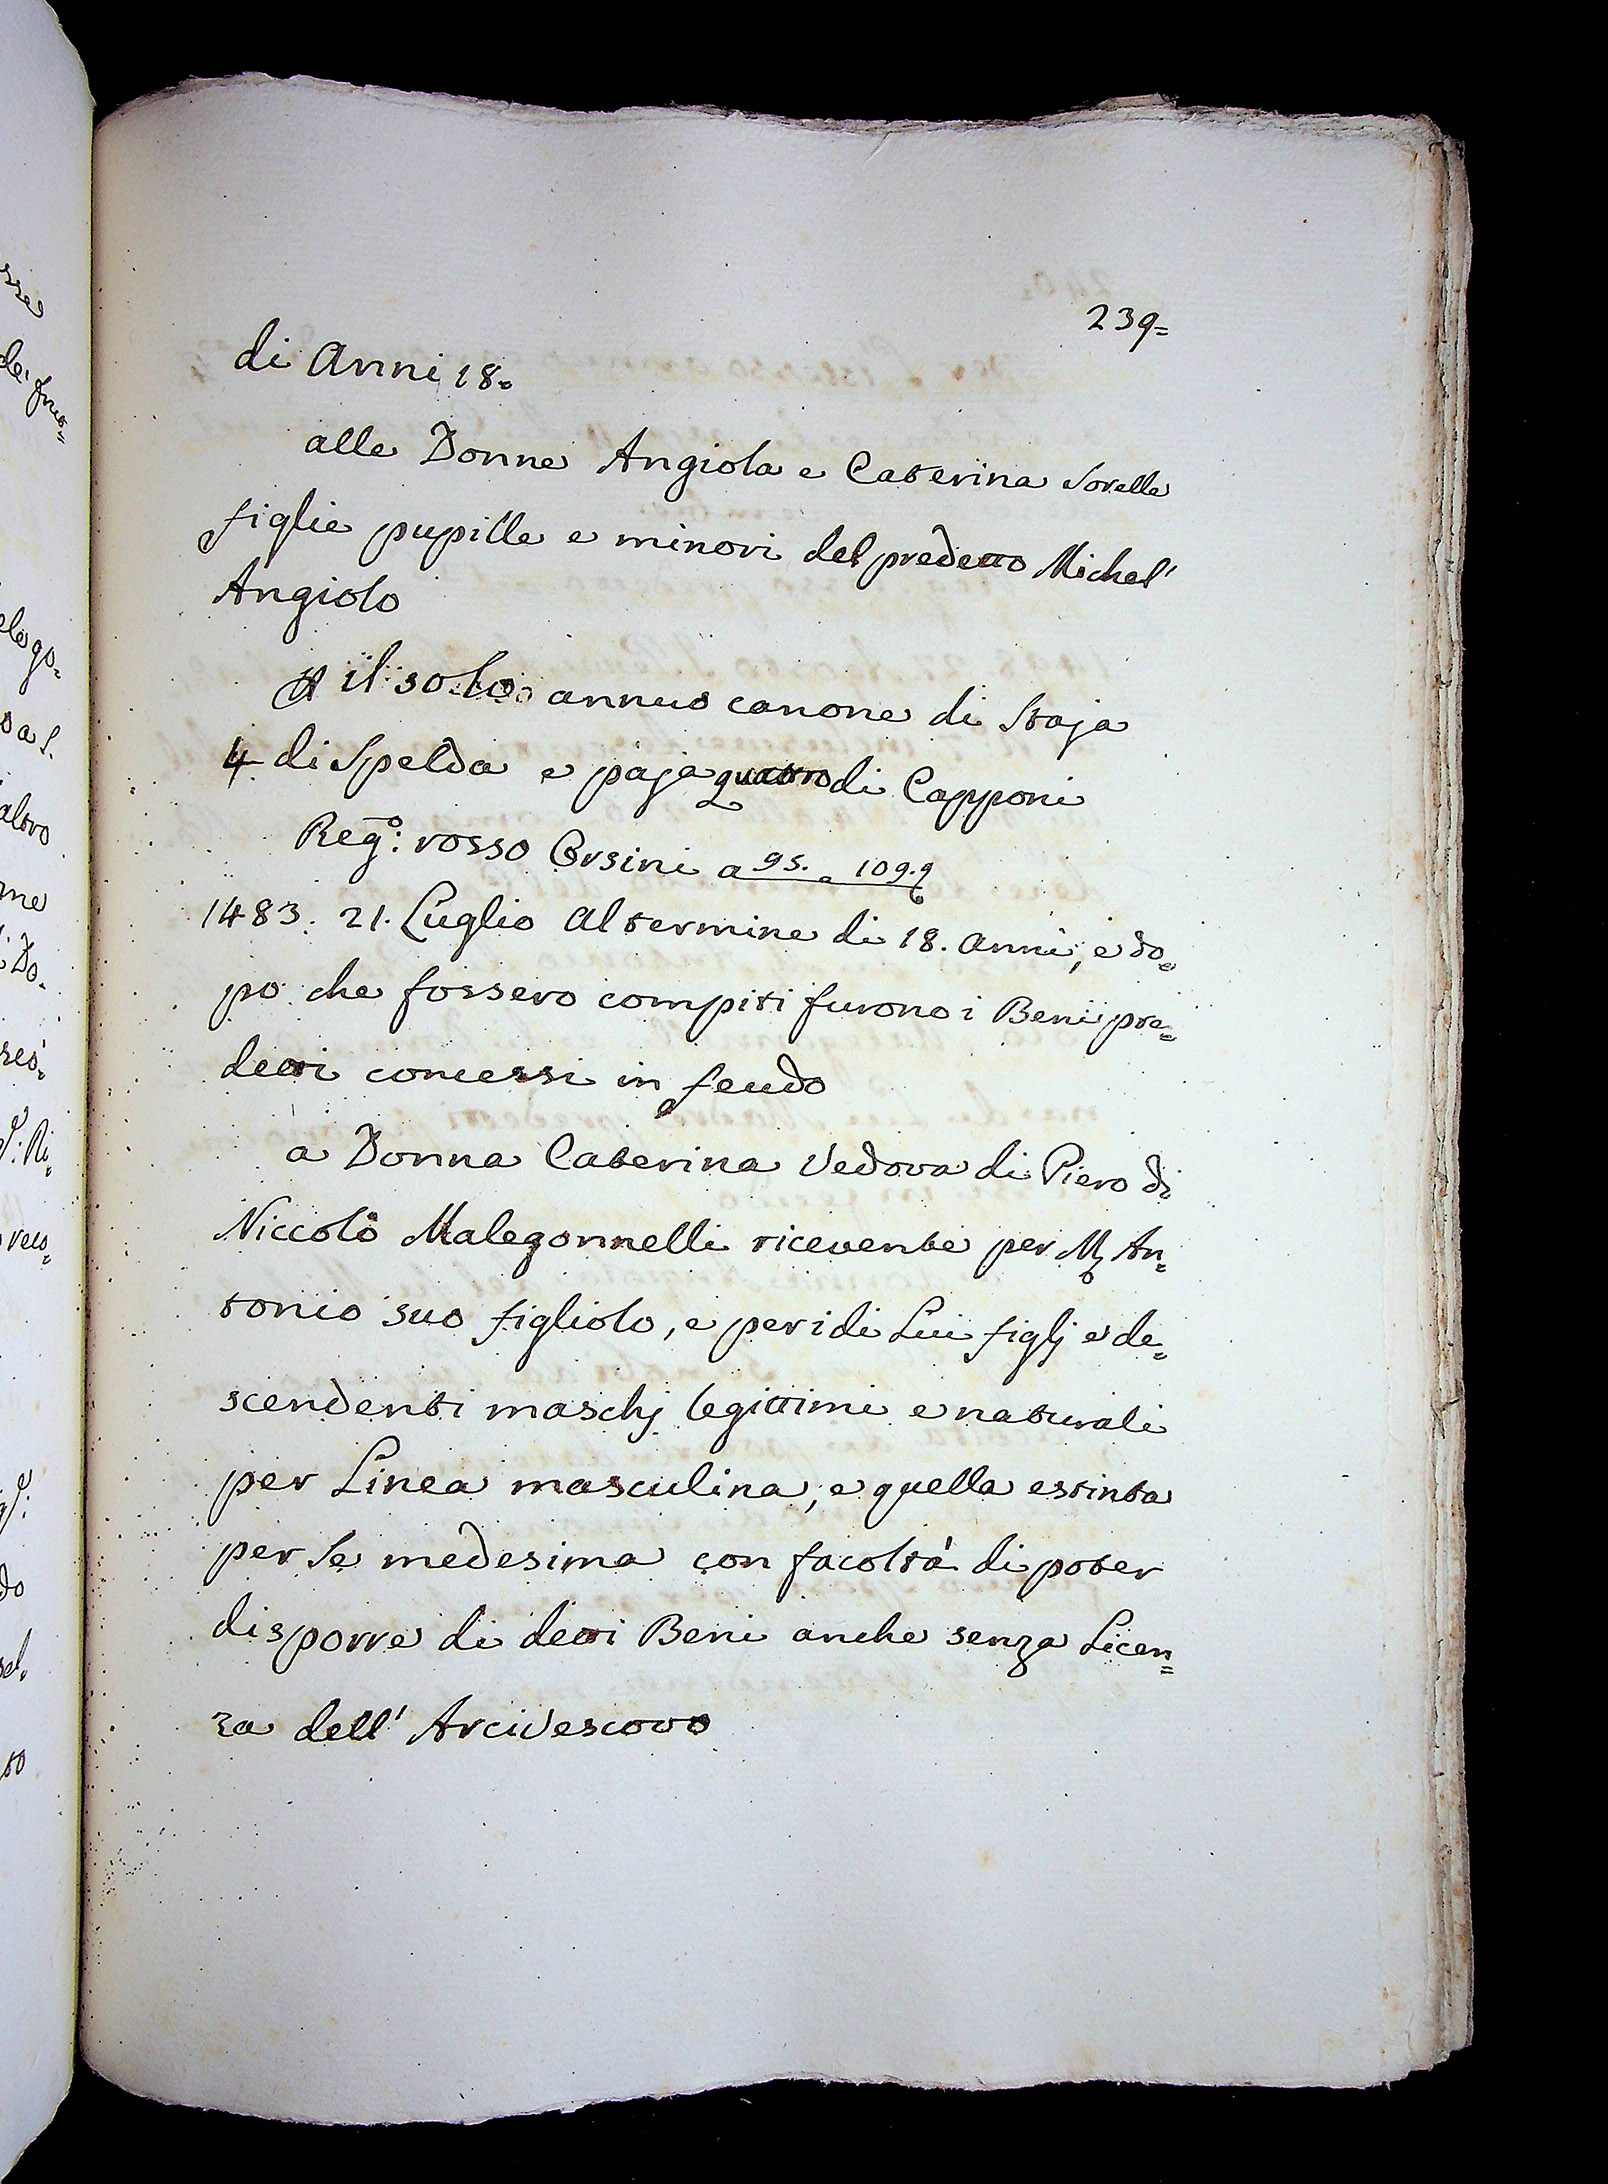 239=
di Anni 18=
alle Donne Angiola e Caterina Sorelle
figlie pupille e minori del predetto Michel'
Angiolo
il solo annuo canone di Staja
4 di Spelda e paja quattro di Capponi
Reg.o: rosso Orsini a 95. e 109.
1483. 21. Luglio al termine di 18. anni, e do=
po che fossero compiti furono i Beni pre=
detti concessi in feudo
a Donna Caterina Vedova di Piero di
Niccolò Malegonnelli ricevente per M An=
tonio suo figliolo, e per i di Lui figlj e de=
scendenti maschj legittimi e naturali
per Linea masculina, e quella estinta
per Se medesima con facoltà di poter
disporre di detti Beni anche senza Licen=
za dell' Arcivescovo
sse
altro
me
Do.
reo=
do